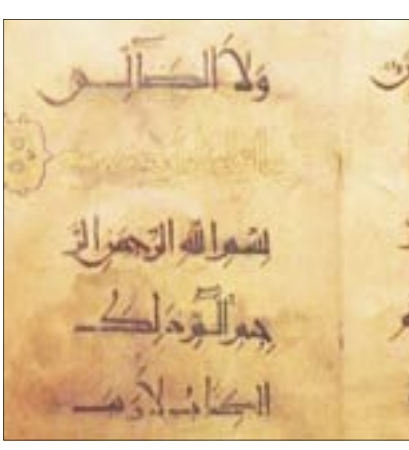 وَلَا الضَّآلِّين
بِسْمِ اللهِ الرَّحمَنِ الرَّ
حِيمِ الٓمٓ ذَلِكَ
الكِتَابُ لَا رَيبَ